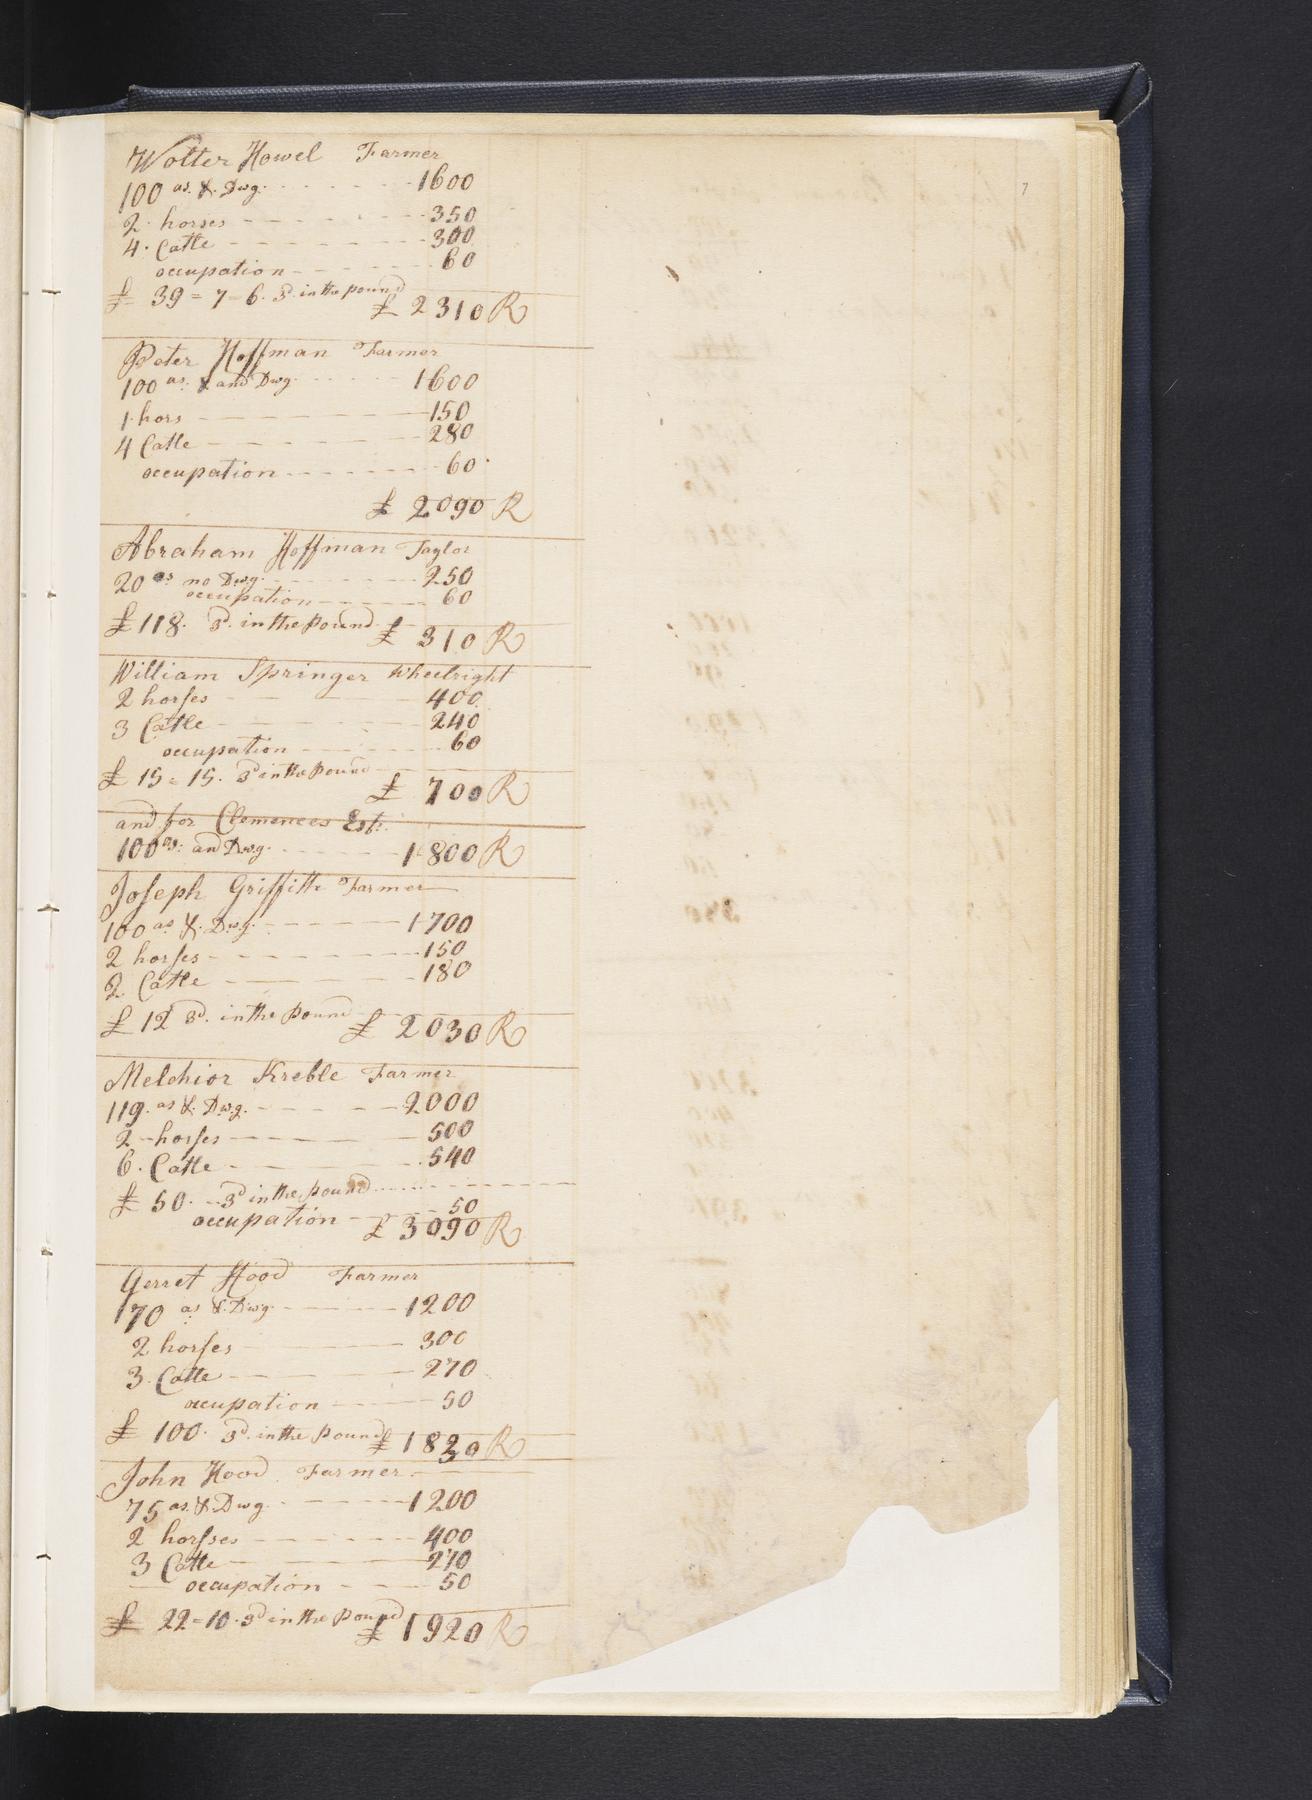 7
Wolter Howel Farmer
100 as. &. Dwg. 1600
2. horses 350
4. Catle 300
occupation 60
£ 39=7=6. 3d. in the pound
£ 2310 R
Peter Hoffman Farmer
100 as. & and Dwg. 1600
1. hors 150
4 Catle 280
occupation 60
£ 2090 R
Abraham Hoffman Taylor
20 as no Dwg. 250
occupation 60
£ 118. 3d. in the pound £ 310 R
William Springer Wheelright
2 horses 400
3 Catle 240
occupation 60
£ 15=15. 3d in the pound
£ 700 R
and for Clemences Est.
100 as. and Dwg. 1800 R
Joseph Griffith Farmer
100 as &. Dwg. 1700
2 horses 150
2 Catle 180
£ 12 3d. in the pound £ 2030 R
Melchior Kreble Farmer
119. as &. Dwg. 2000
2 horses 500
6. Catle 540
£ 50. 3d in the pound
occupation 50
£ 3090 R
Gerret Hood Farmer
170 as &. Dwg. 1200
2 horses 300
3. Catle 270
occupation 50
£ 100. 3d. in the pound £ 1820 R
John Hood Farmer
75 as. & Dwg. 1200
2 horsses 400
3 Catle 270
occupation 50
£ 22=10. 3d in the pound
£ 1920 R